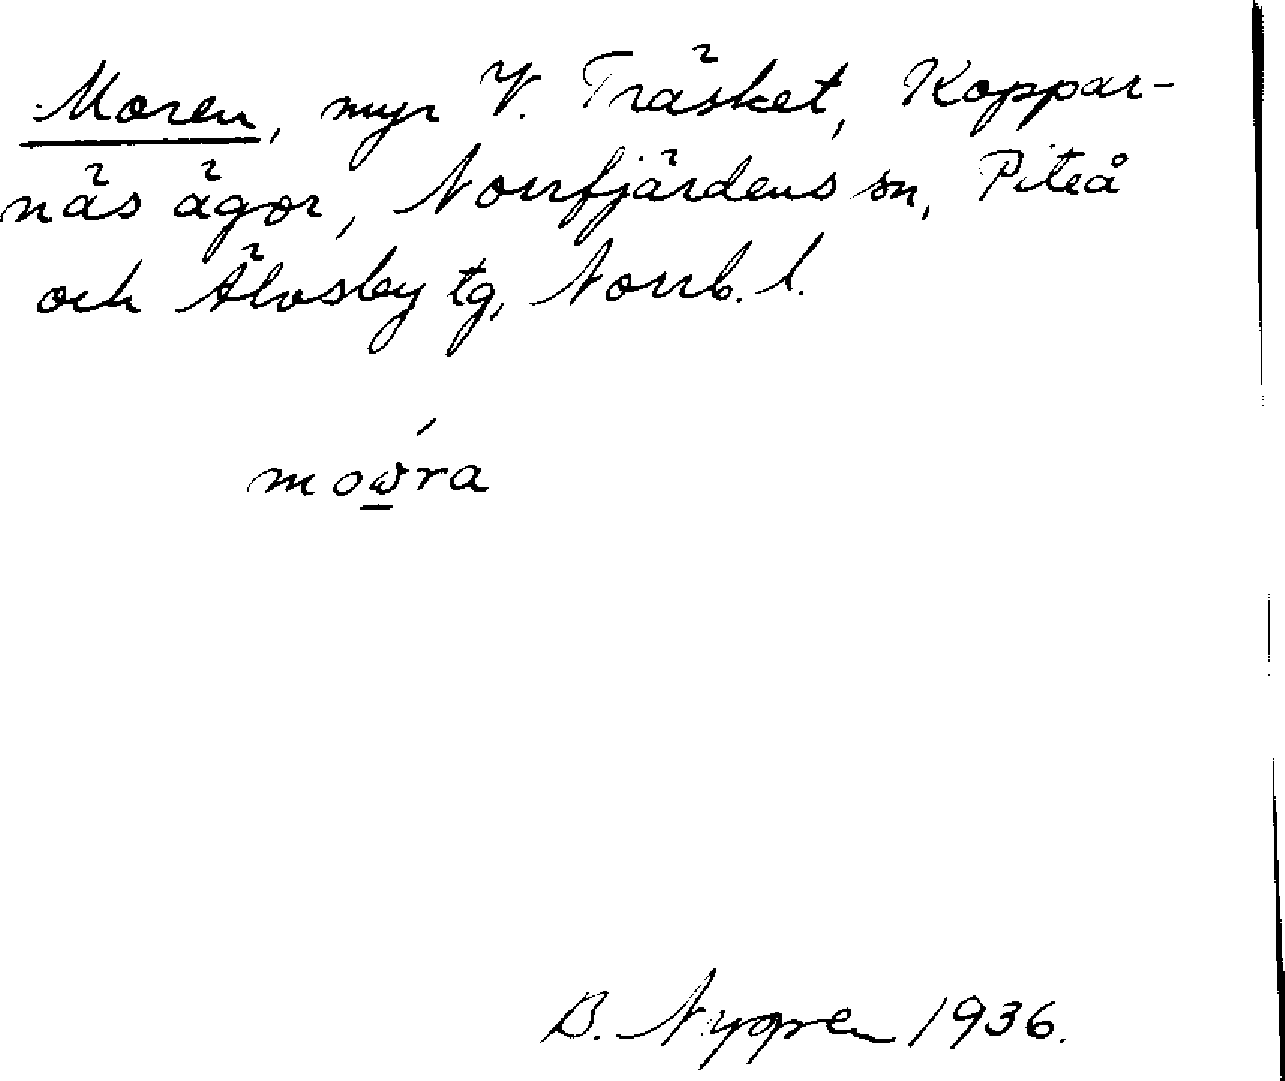 Moren, myr V. Träsket, Koppar-
näs ägor, Norrfjärdens sn, Piteå
och Älvsby tg, Norrb. l.
B. Nygren 1936.